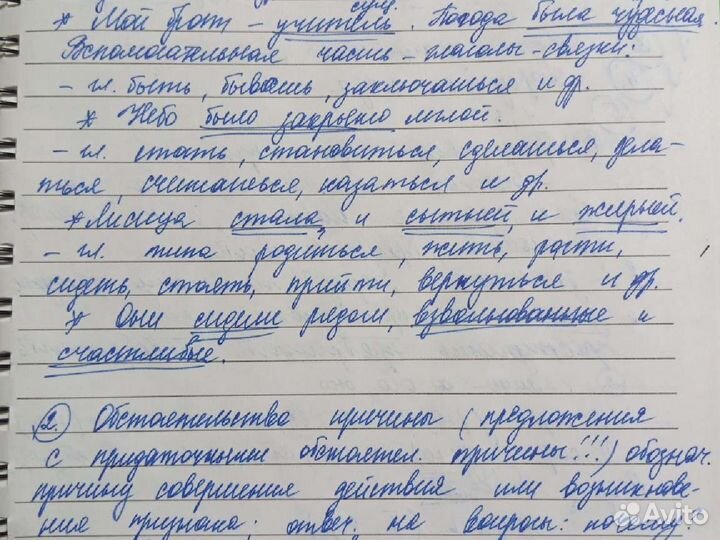 сущ.
* Мой брат – учитель. Погода была чудесная.
Вспомогательная часть – глаголы-связки:
– гл. быть, бывать, заключаться и др.
* Небо было закрыто мглой.
– гл. стать, становиться, сделаться, дела-
ться, считаться, казаться и др.
* Лисица стала и сытней, и жирней.
– гл. типа родиться, жить, расти,
сидеть, стоять, прийти, вернуться и др.
* Они сидели рядом, взволнованные и
счастливые.
2. Обстоятельства причины (предложения
с придаточными обстоятел. причины!!!) обознач.
причину совершения действия или возникнове-
ния признака; отвеч. на вопросы: почему?
Avito